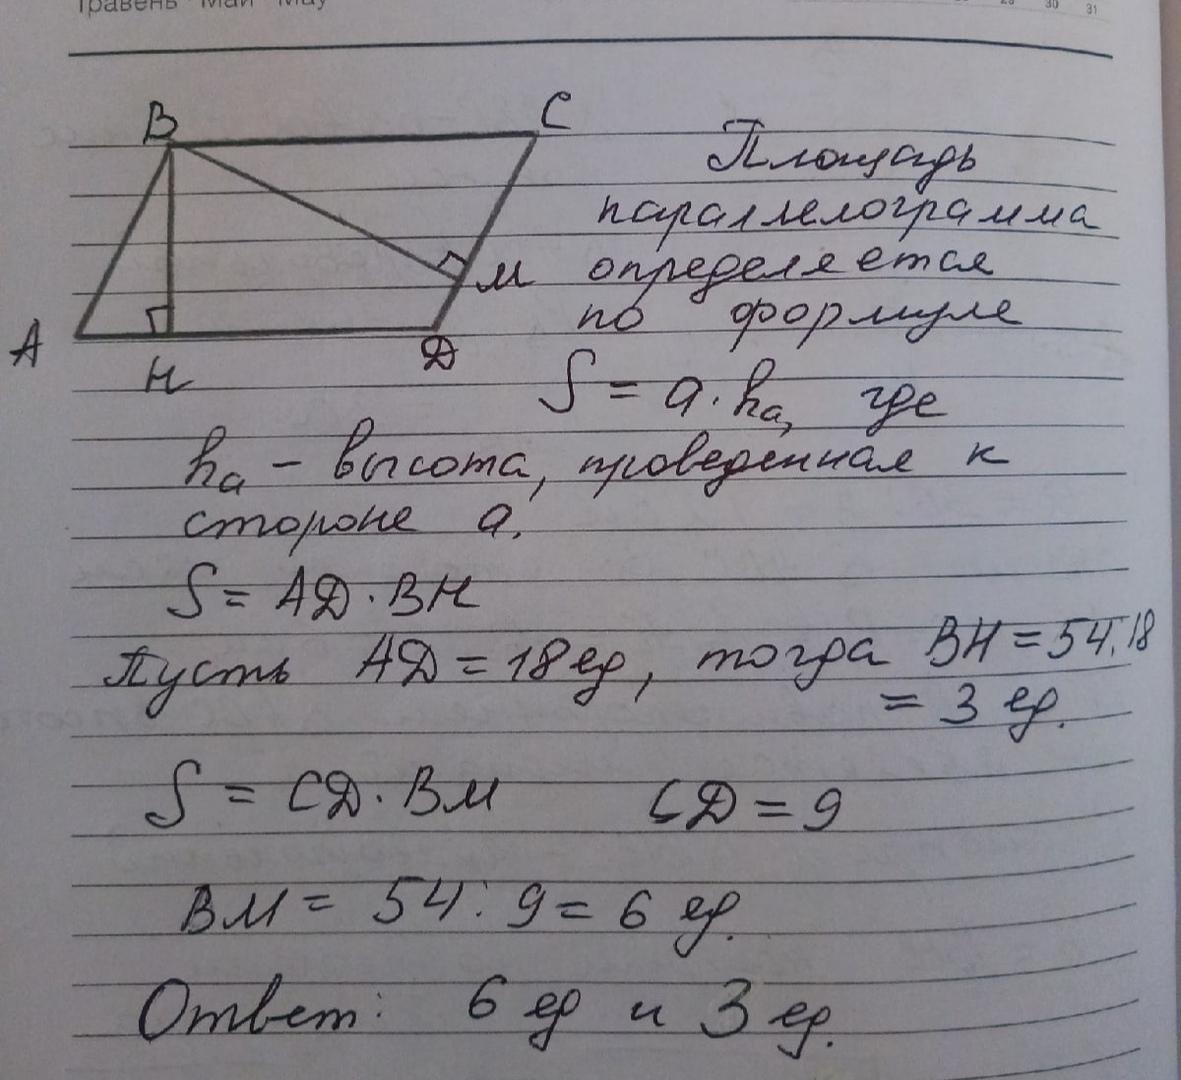 Травень Май May
29 30 31
B
C
M
A
H
D
Площадь
параллелограмма
определяется
по формуле
S = a · hₐ, где
hₐ – высота, проведенная к
стороне a.
S = AD · BH
Пусть AD = 18 ед, тогда BH = 54:18
= 3 ед.
S = CD · BM CD = 9
BM = 54 : 9 = 6 ед.
Ответ: 6 ед и 3 ед.